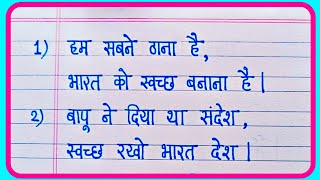 1) हम सबने ठाना है,
भारत को स्वच्छ बनाना है।
2) बापू ने दिया था संदेश,
स्वच्छ रखो भारत देश।